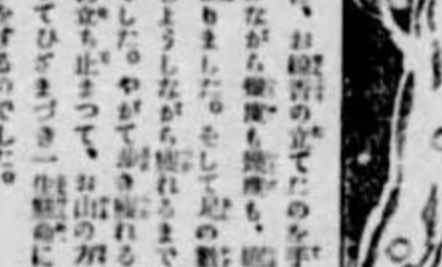 、お線香の立てたのを手
ながら幾度も幾度も、
りました。そして足の
ようしながら疲れるまで
した。やがて歩き疲れる
立ち止まつて、お山の方
てひざまづき一生懸命に
をするのでした。